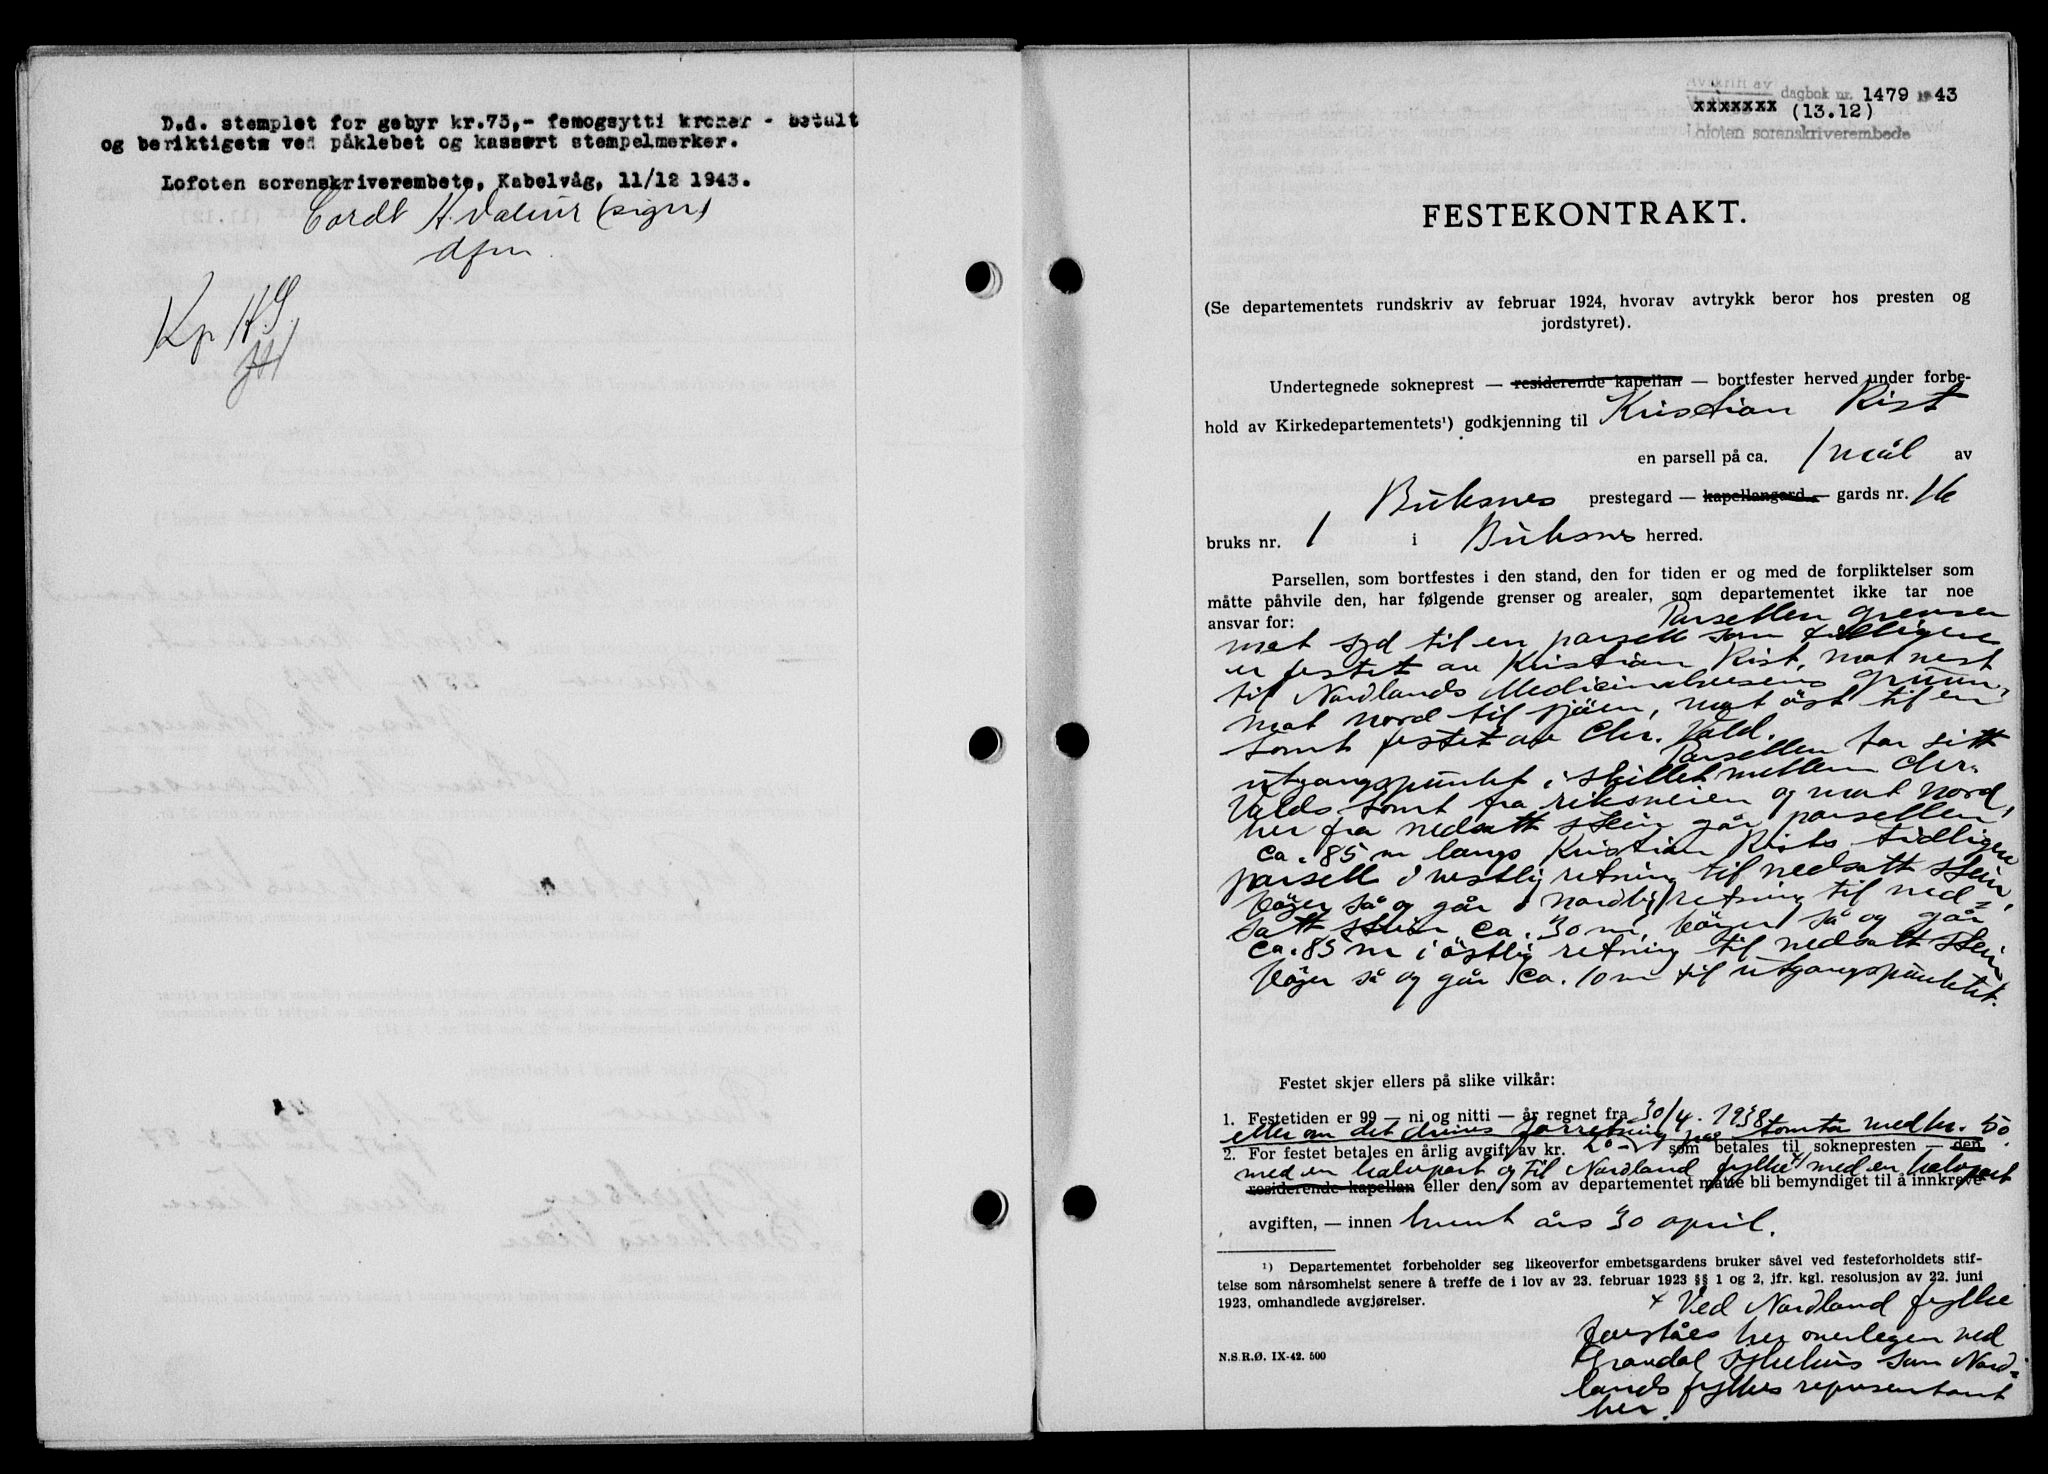 D.d. stemplet for gebyr kr.75,- femogsytti kroner - betalt
og beriktigets ved påklebet og kassert stempelmerker.
Lofoten sorenskriverembete, Kabelvåg, 11/12 1943.
Cordt H. (sign)
dfm
Kp H.J.
Avskrift av
xxxxxxx dagbok nr. 1479 1943
(13.12)
Lofoten sorenskriverembede
FESTEKONTRAKT.
(Se departementets rundskriv av februar 1924, hvorav avtrykk beror hos presten og
jordstyret).
Undertegnede sokneprest — residerende kapellan — bortfester herved under forbe-
hold av Kirkedepartementets¹) godkjenning til Kristian Rist
en parsell på ca. 1 mål av
Buksnes prestegard — kapellangard — gards nr. 16
bruks nr. 1 i Buksnes herred.
Parsellen, som bortfestes i den stand, den for tiden er og med de forpliktelser som
måtte påhvile den, har følgende grenser og arealer, som departementet ikke tar noe
ansvar for: Parsellen grenser
mot syd til en parsell som tidligere
er festet av Kristian Rist, mot vest
til Nordlands Medicinalvesens grunn,
mot nord til sjöen, mot öst til en
tomt festet av Chr. Vold.
Parsellen tar sitt
utgangspunkt i skillet mellem Chr.
Volds tomt fra riksveien og mot nord,
her fra nedsatt stein går parsellen
ca. 85 m langs Kristian Rists tidligere
parsell i vestlig retning til nedsatt stein,
böyer så og går i nordlig retning til ned-
satt stein ca. 30 m, böyer så og går
ca. 85 m i östlig retning til nedsatt stein
böyer så og går ca. 10 m til utgangspunktet.
Festet skjer ellers på slike vilkår:
1. Festetiden er 99 — ni og nitti — år regnet fra 30/4. 1938
eller om det drives forretning på tomta med kr. 50.
2. For festet betales en årlig avgift av kr. 20 - som betales til soknepresten — den
med en halvpart og til Nordland fylke x) med en halvpart
residerende kapellan eller den, som av departementet måtte bli bemyndiget til å innkreve
avgiften, — innen hvert års 30 april.
¹) Departementet forbeholder seg likeoverfor embetsgardens bruker såvel ved festeforholdets stif-
telse som nårsomhelst senere å treffe de i lov av 23. februar 1923 §§ 1 og 2, jfr. kgl. resolusjon av 22. juni
1923, omhandlede avgjørelser.
x Ved Nordland fylke
forståes her overlegen ved
Gravdal sykehus som Nord-
lands fylkes representant
her.
N.S.R.Ø. IX-42. 500